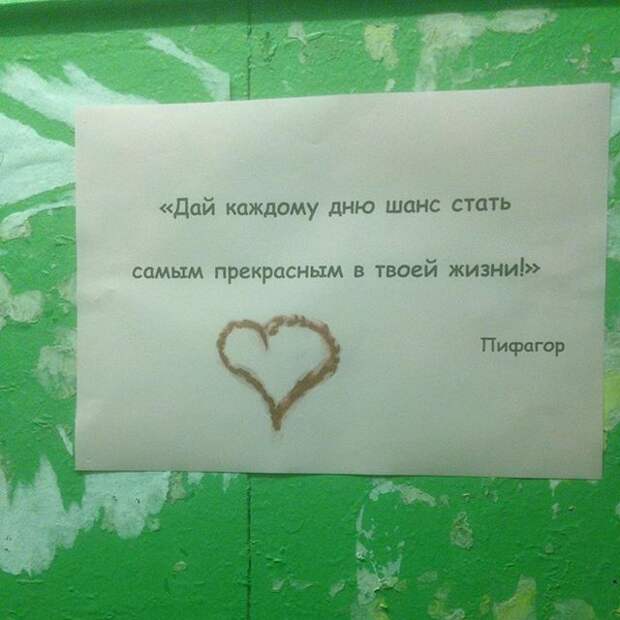 «Дай каждому дню шанс стать
самым прекрасным в твоей жизни!»
Пифагор